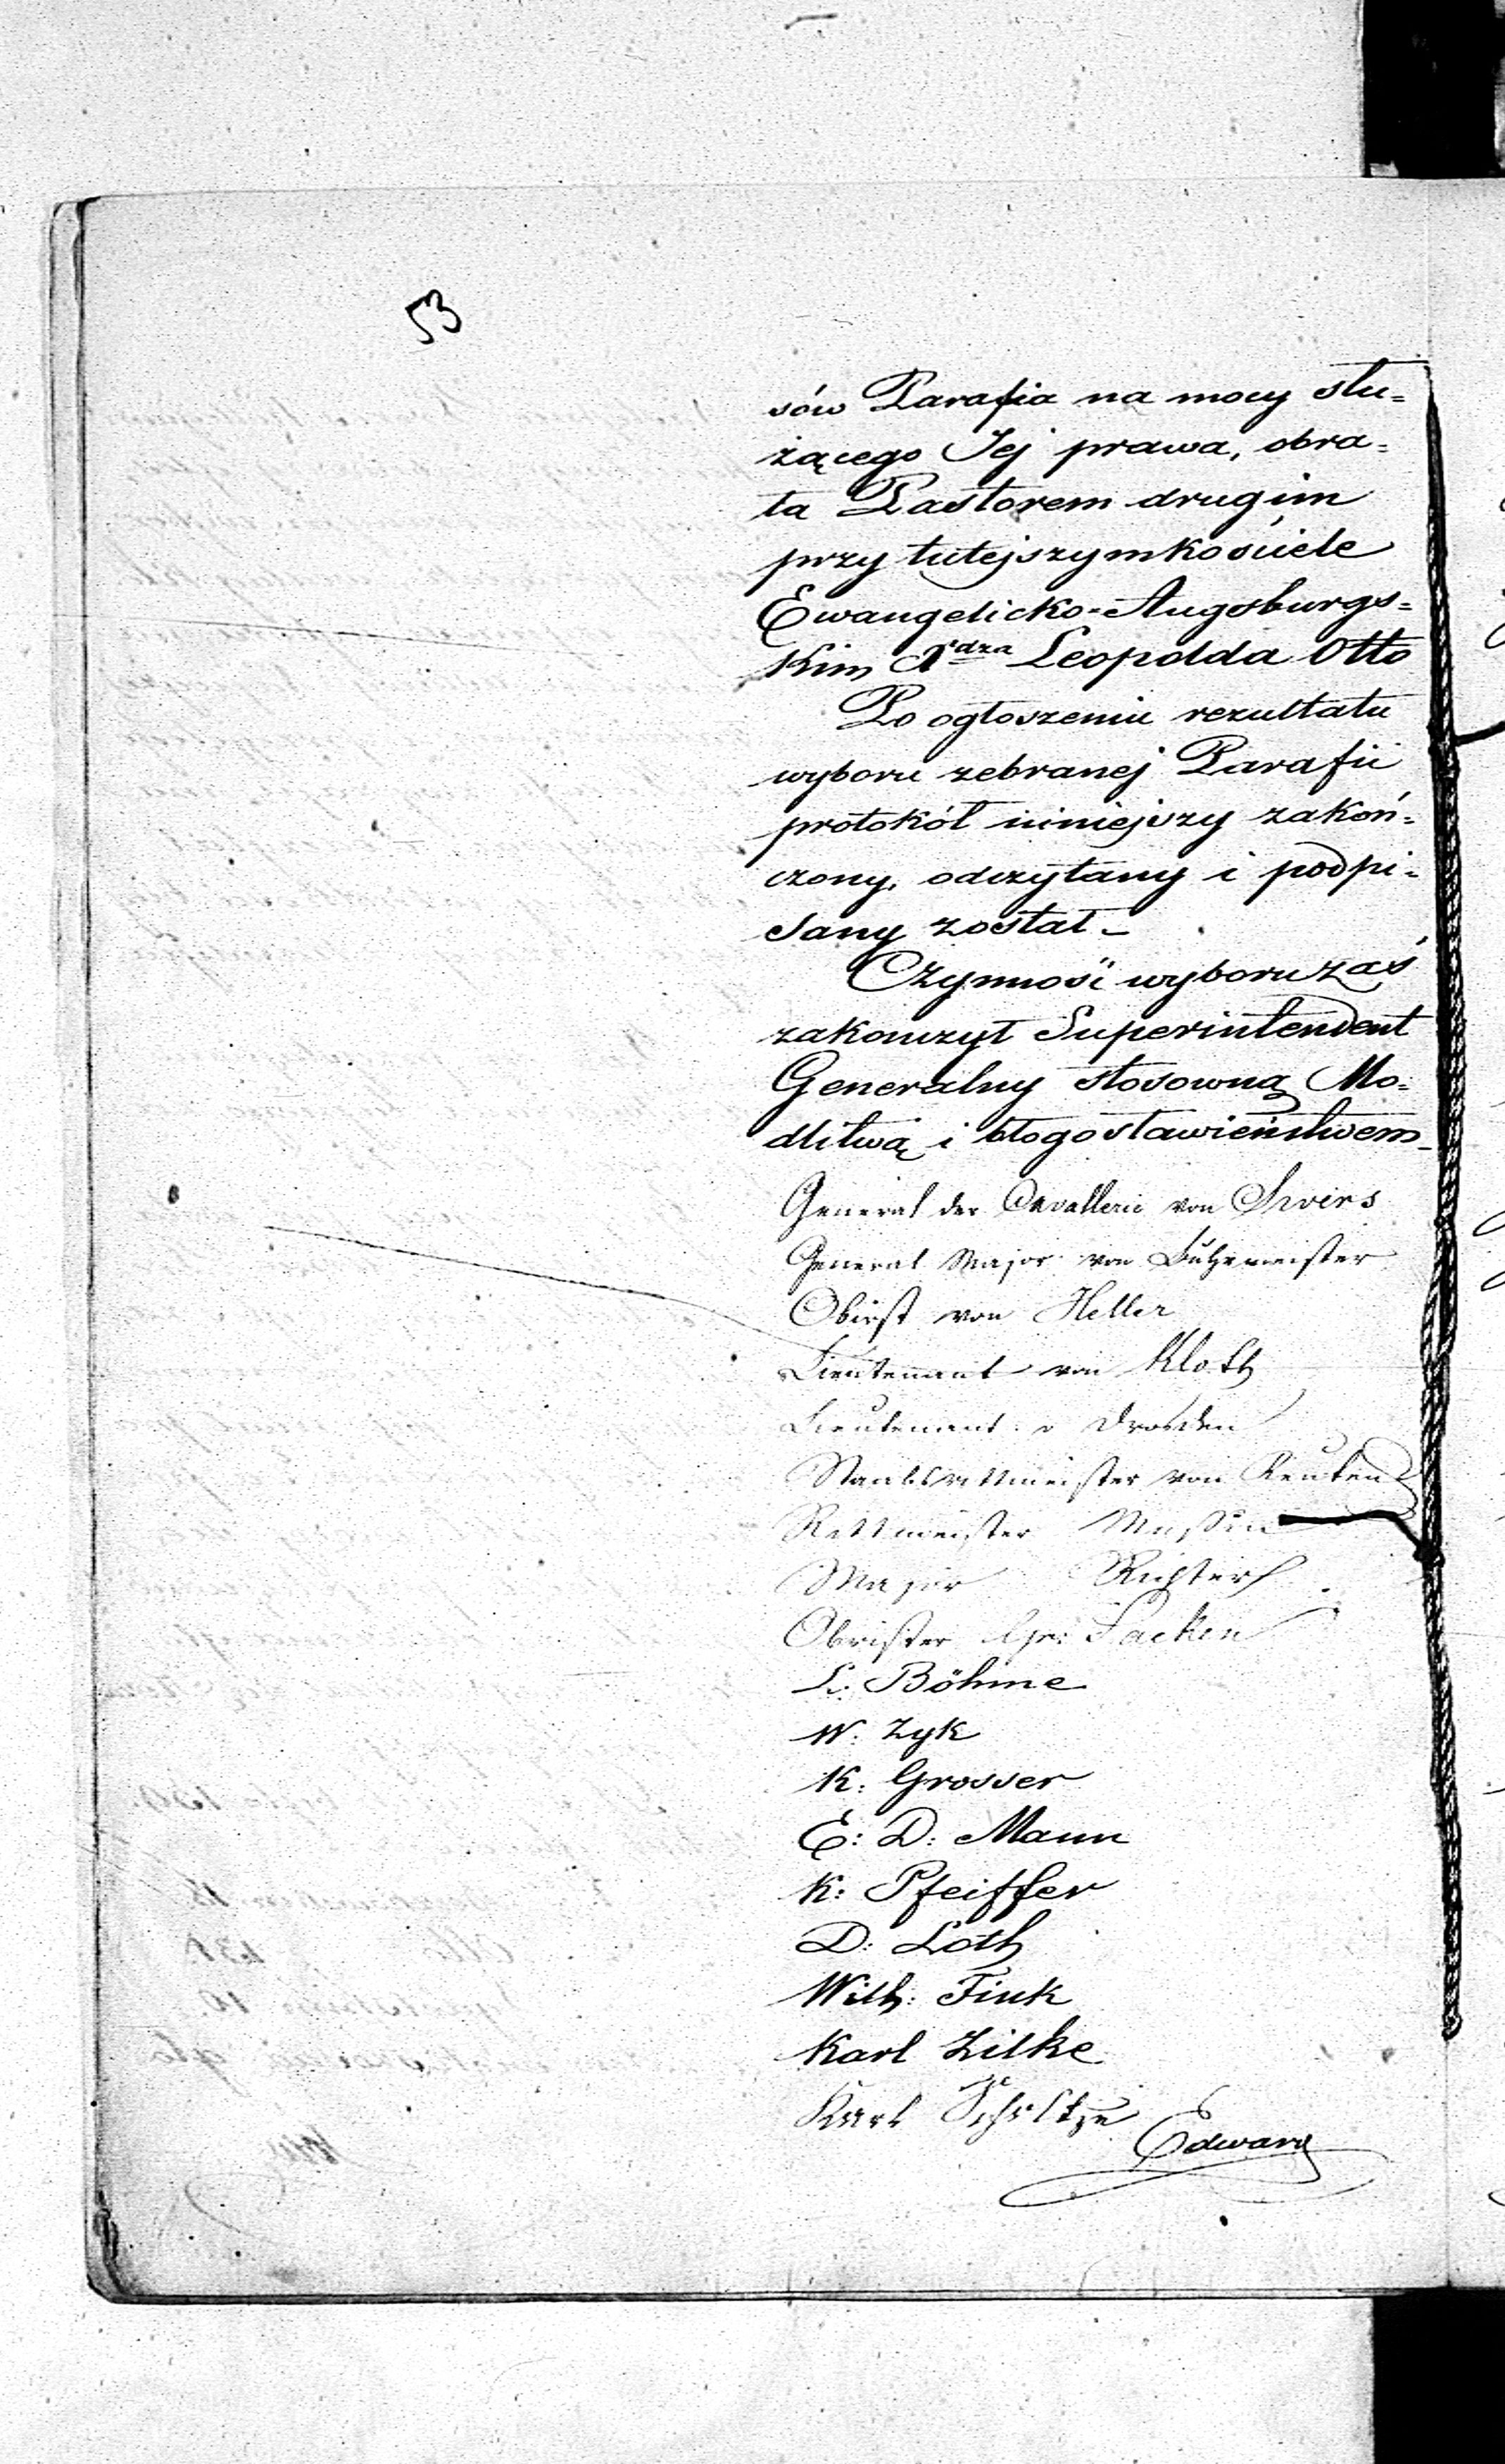 53
sów Parafia na mocy słu=
żącego Jej prawa, obra=
ła Pastorem drugim
przy tutejszym kościele
Ewangelicko-Augsburgs=
kim Xdza Leopolda Otto
Po ogłoszeniu rezultatu
wyboru zebranej Parafii
protokół niniejszy zakoń=
czony, odczytany i podpi=
sany został _
Czynność wyboru zaś
zakończył Superintendent
Generalny stosowną Mo=
dlitwą i błogosławieństwem_
General der Cavallerie von
General Major von
Obirst von Heller
Lieutenant von Kloth
Lieutenant v
Staabsrittmeister von
Rittmeister
Major Richter
Obrister Sacken
L: Böhme
W: Zyk
K: Grosser
E: D: Mann
K: Pfeiffer
D: Loth
Wilh: Fink
Karl Zilke
Karl Scholtze
Edward